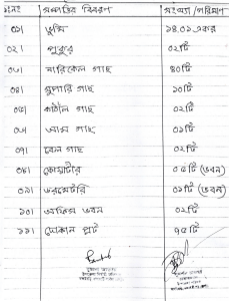 নং সম্পত্তির বিবরণ সংখ্যা/পরিমাণ
০১। ভূমি ১৪.০১ একর
০২। পুকুর ০২টি
০৩। নারিকেল গাছ ৪০টি
০৪। সুপারি গাছ ১০টি
০৫। কাঠাল গাছ ০২টি
০৬। আম গাছ ০১টি
০৭। বেল গাছ ০২টি
০৮। কোয়ার্টার ০৫টি (ভবন)
০৯। ডরমেটরি ০১টি (ভবন)
১০। অফিস ভবন ০২টি
১১। দোকান প্লট ৭৫টি